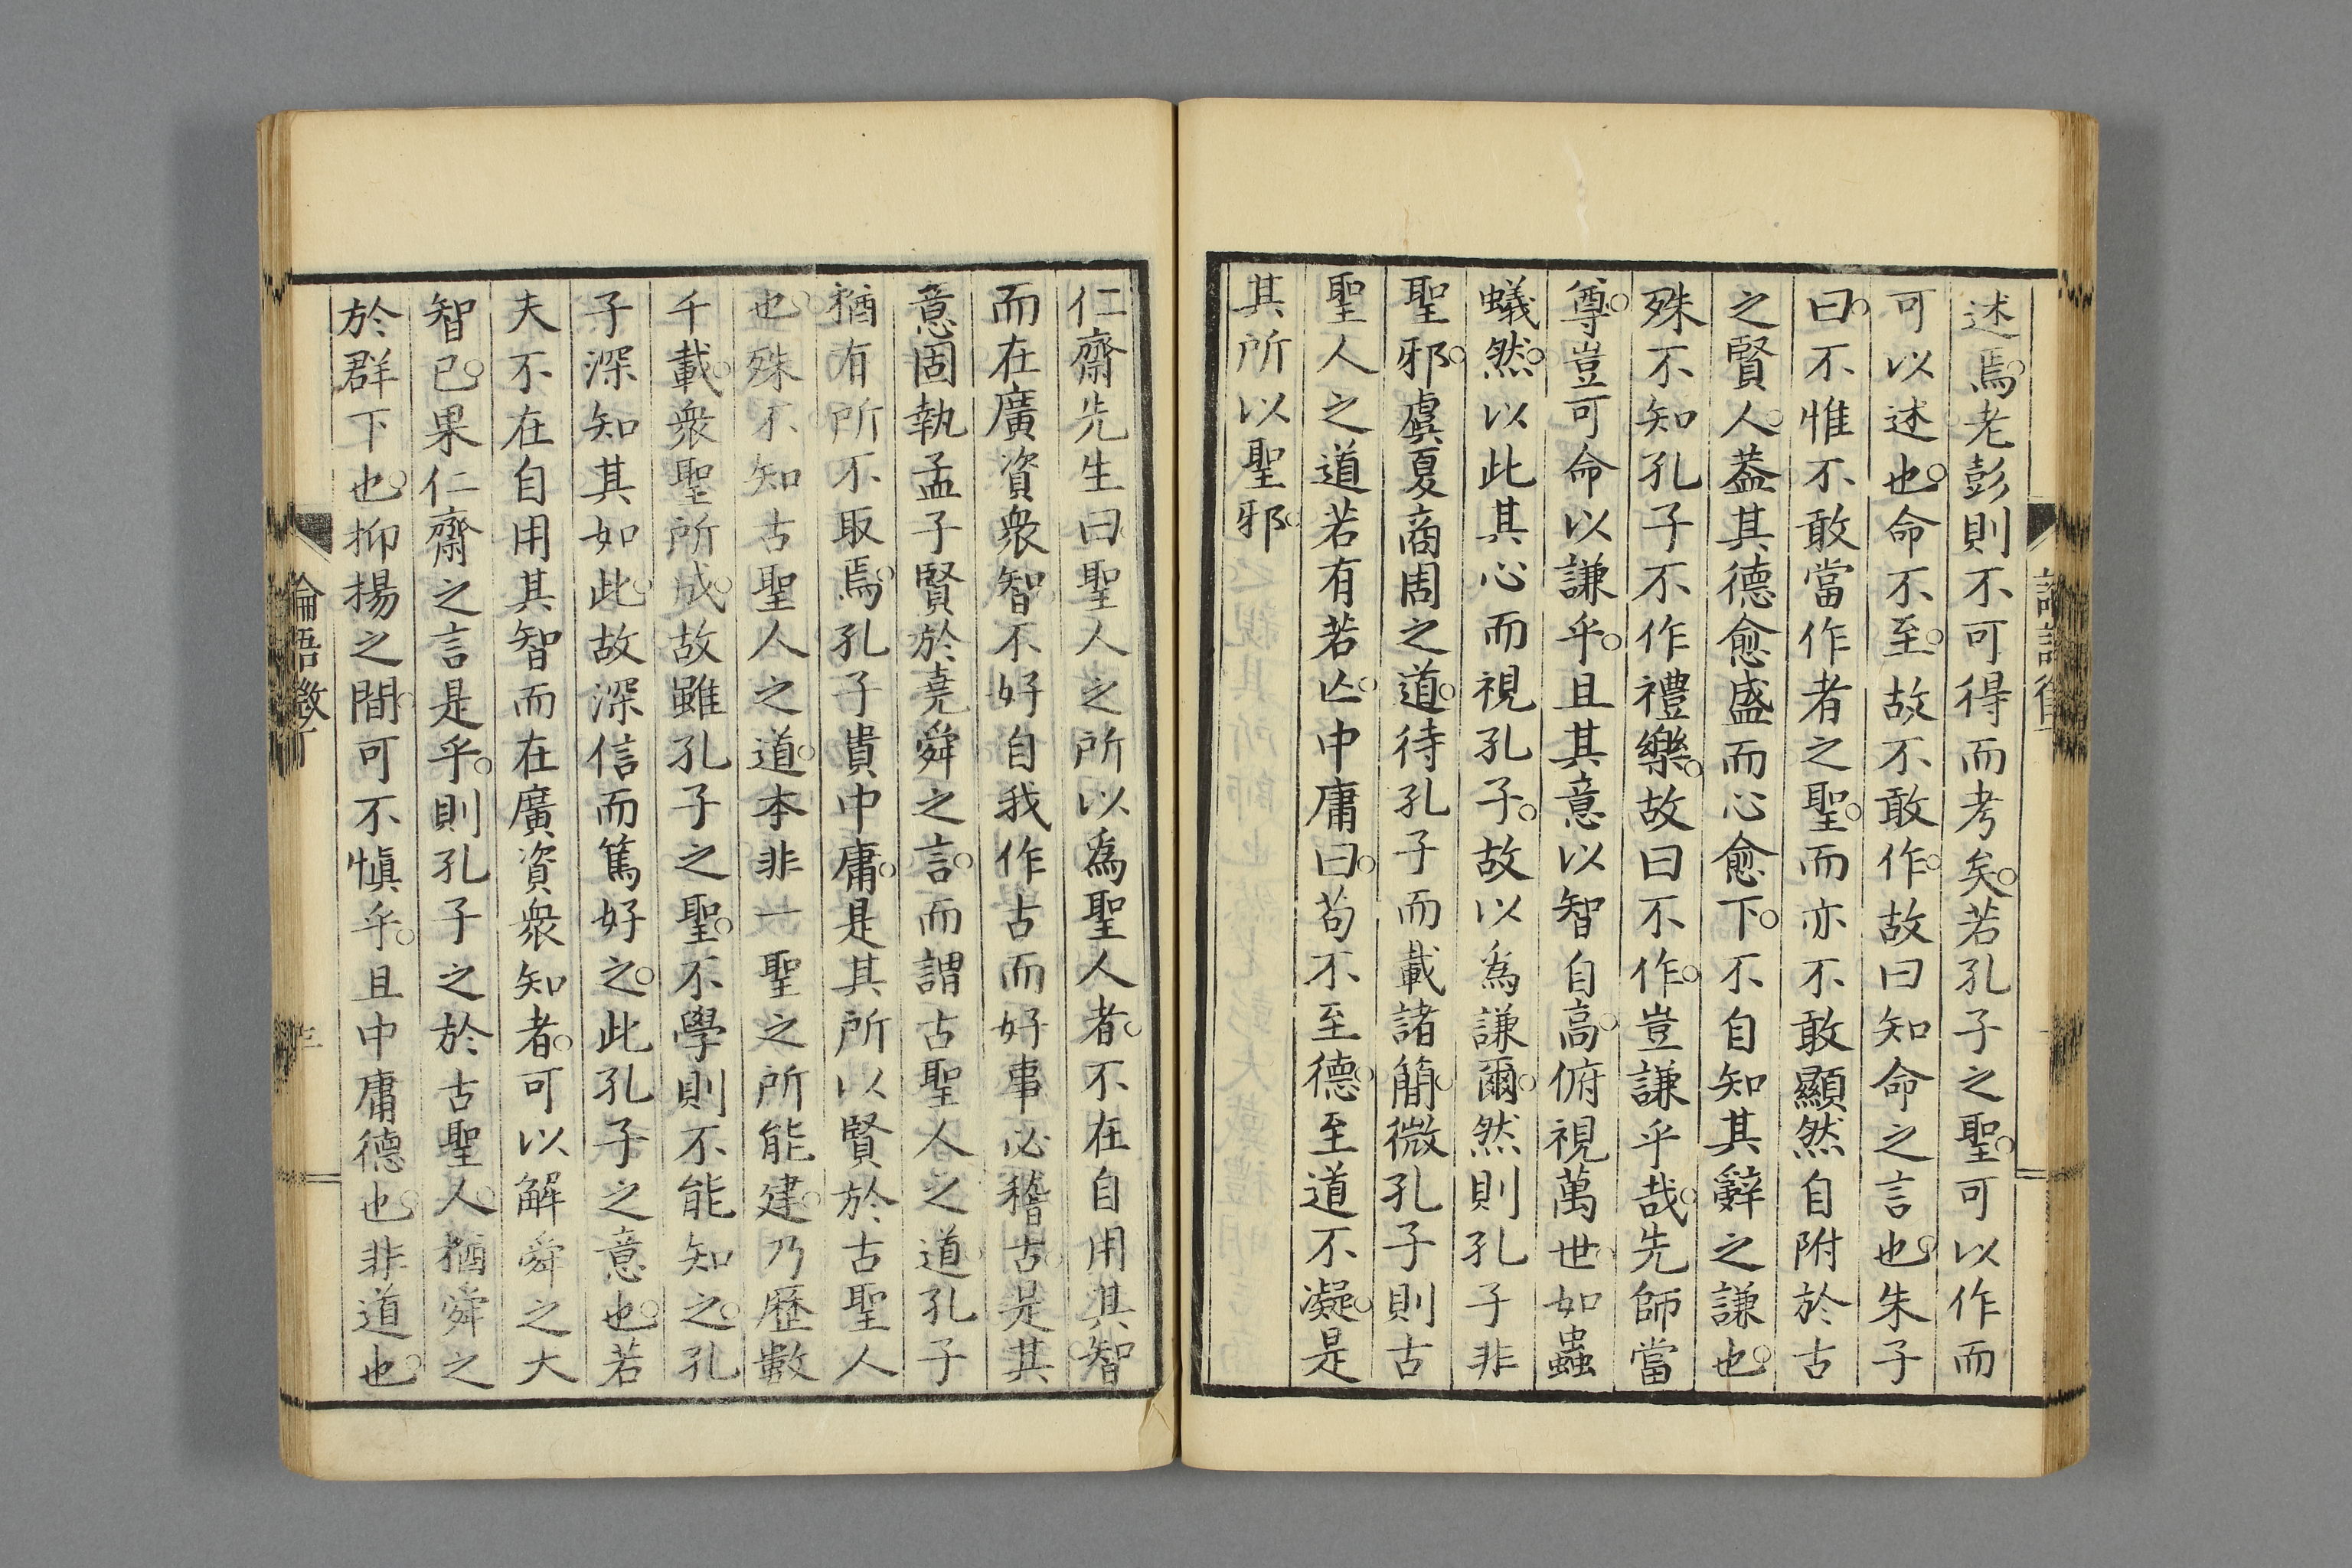 述焉。老彭則不可得而考矣。若孔子之聖。可以作而
可以述也。命不至。故不敢作。故曰知命之言也。朱子
曰。不惟不敢當作者之聖。而亦不敢顯然自附於古
之賢人。蓋其德愈盛而心愈下。不自知其辭之謙也。
殊不知孔子不作禮樂。故曰不作。豈謙乎哉。先師當
尊。豈可命以謙乎。且其意以智自高。俯視萬世。如蟲
蟻然。以此其心而視孔子。故以為謙爾。然則孔子非
聖邪。虞夏商周之道。待孔子而載諸簡。微孔子則古
聖人之道若有若亾。中庸曰。苟不至德。至道不凝。是
其所以聖邪。
仁齋先生曰。聖人之所以爲聖人者。不在自用其智。
而在廣資衆智。不好自我作古。而好事必稽古。是其
意固執孟子賢於堯舜之言。而謂古聖人之道。孔子
猶有所不取焉。孔子貴中庸。是其所以賢於古聖人
也。殊不知古聖人之道。本非一聖之所能建。乃歷數
千載。衆聖所成。故雖孔子之聖。不學則不能知之。孔
子深知其如此。故深信而篤好之。此孔子之意也。若
夫不在自用其智而在廣資衆知者。可以解舜之大
智已。果仁齋之言是乎。則孔子之於古聖人。猶舜之
於群下也。抑揚之間。可不愼乎。且中庸德也。非道也。
論語徵丁